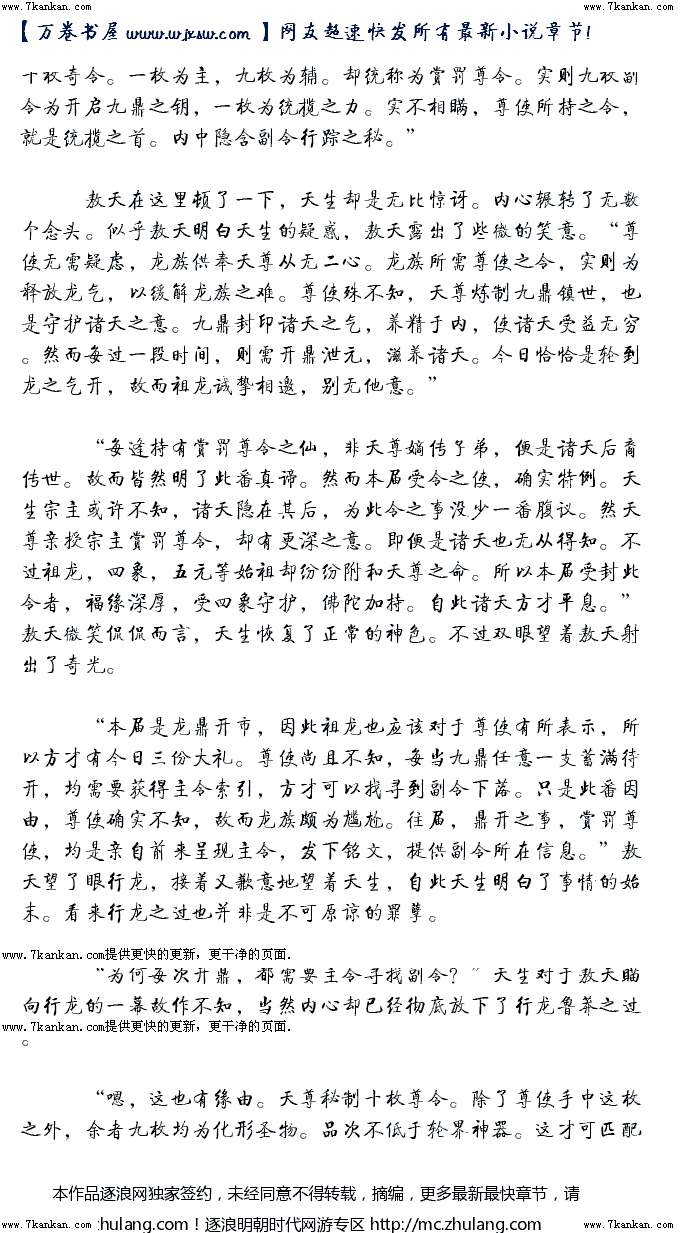 www.7kankan.com www.7kankan.com
【万卷书屋 www.wjxsw.com 】网友超速快发所有最新小说章节!
十枚奇令。一枚为主，九枚为辅。却统称为赏罚尊令。实则九枚副
令为开启九鼎之钥，一枚为统揽之力。实不相瞒，尊使所持之令，
就是统揽之首。内中隐含副令行踪之秘。”
敖天在这里顿了一下，天生却是无比惊讶。内心辗转了无数
个念头。似乎敖天明白天生的疑惑，敖天露出了些微的笑意。“尊
使无需疑虑，龙族供奉天尊从无二心。龙族所需尊使之令，实则为
释放龙气，以缓解龙族之难。尊使殊不知，天尊炼制九鼎镇世，也
是守护诸天之意。九鼎封印诸天之气，养精于内，使诸天受益无穷
。然而每过一段时间，则需开鼎泄元，滋养诸天。今日恰恰是轮到
龙之气开，故而祖龙诚挚相邀，别无他意。”
“每逢持有赏罚尊令之仙，非天尊嫡传子弟，便是诸天后裔
传世。故而皆然明了此番真谛。然而本届受令之使，确实特例。天
生宗主或许不知，诸天隐在其后，为此令之事没少一番腹议。然天
尊亲授宗主赏罚尊令，却有更深之意。即便是诸天也无从得知。不
过祖龙，四象，五元等始祖却纷纷附和天尊之命。所以本届受封此
令者，福缘深厚，受四象守护，佛陀加持。自此诸天方才平息。”
敖天微笑侃侃而言，天生恢复了正常的神色。不过双眼望着敖天射
出了奇光。
“本届是龙鼎开市，因此祖龙也应该对于尊使有所表示，所
以方才有今日三份大礼。尊使尚且不知，每当九鼎任意一支蓄满待
开，均需要获得主令索引，方才可以找寻到副令下落。只是此番因
由，尊使确实不知，故而龙族颇为尴尬。往届，鼎开之事，赏罚尊
使，均是亲自前来呈现主令，发下铭文，提供副令所在信息。”敖
天望了眼行龙，接着又歉意地望着天生，自此天生明白了事情的始
末。看来行龙之过也并非是不可原谅的罪孽。
www.7kankan.com提供更快的更新，更干净的页面.
“为何每次开鼎，都需要主令寻找副令？”天生对于敖天瞄
向行龙的一幕故作不知，当然内心却已经彻底放下了行龙鲁莽之过
www.7kankan.com提供更快的更新，更干净的页面.
。
“嗯，这也有缘由。天尊秘制十枚尊令。除了尊使手中这枚
之外，余者九枚均为化形圣物。品次不低于轮界神器。这才可匹配
本作品逐浪网独家签约，未经同意不得转载，摘编，更多最新最快章节，请
www.7kankan.com zhulang.com！逐浪明朝时代网游专区 http://mc.zhulang.com www.7kankan.com